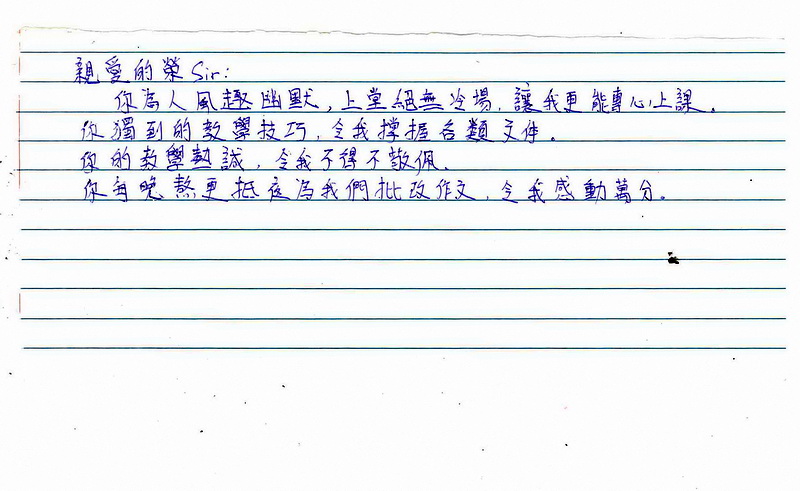 親愛的榮Sir:
你為人風趣幽默，上堂絕無冷場，讓我更能專心上課。
你獨到的教學技巧，令我掌握各類文件。
你的教學熱誠，令我不得不敬佩。
你每晚熬更抵夜為我們批改作文，令我感動萬分。